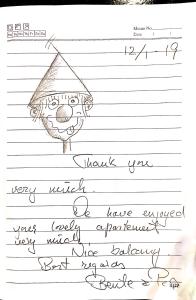 Memo No.
Date / /
12/1-19
Thank you
very much.
We have enjoyed
your lovely apartement
very much!
Nice balcony
Best regards
Bente &